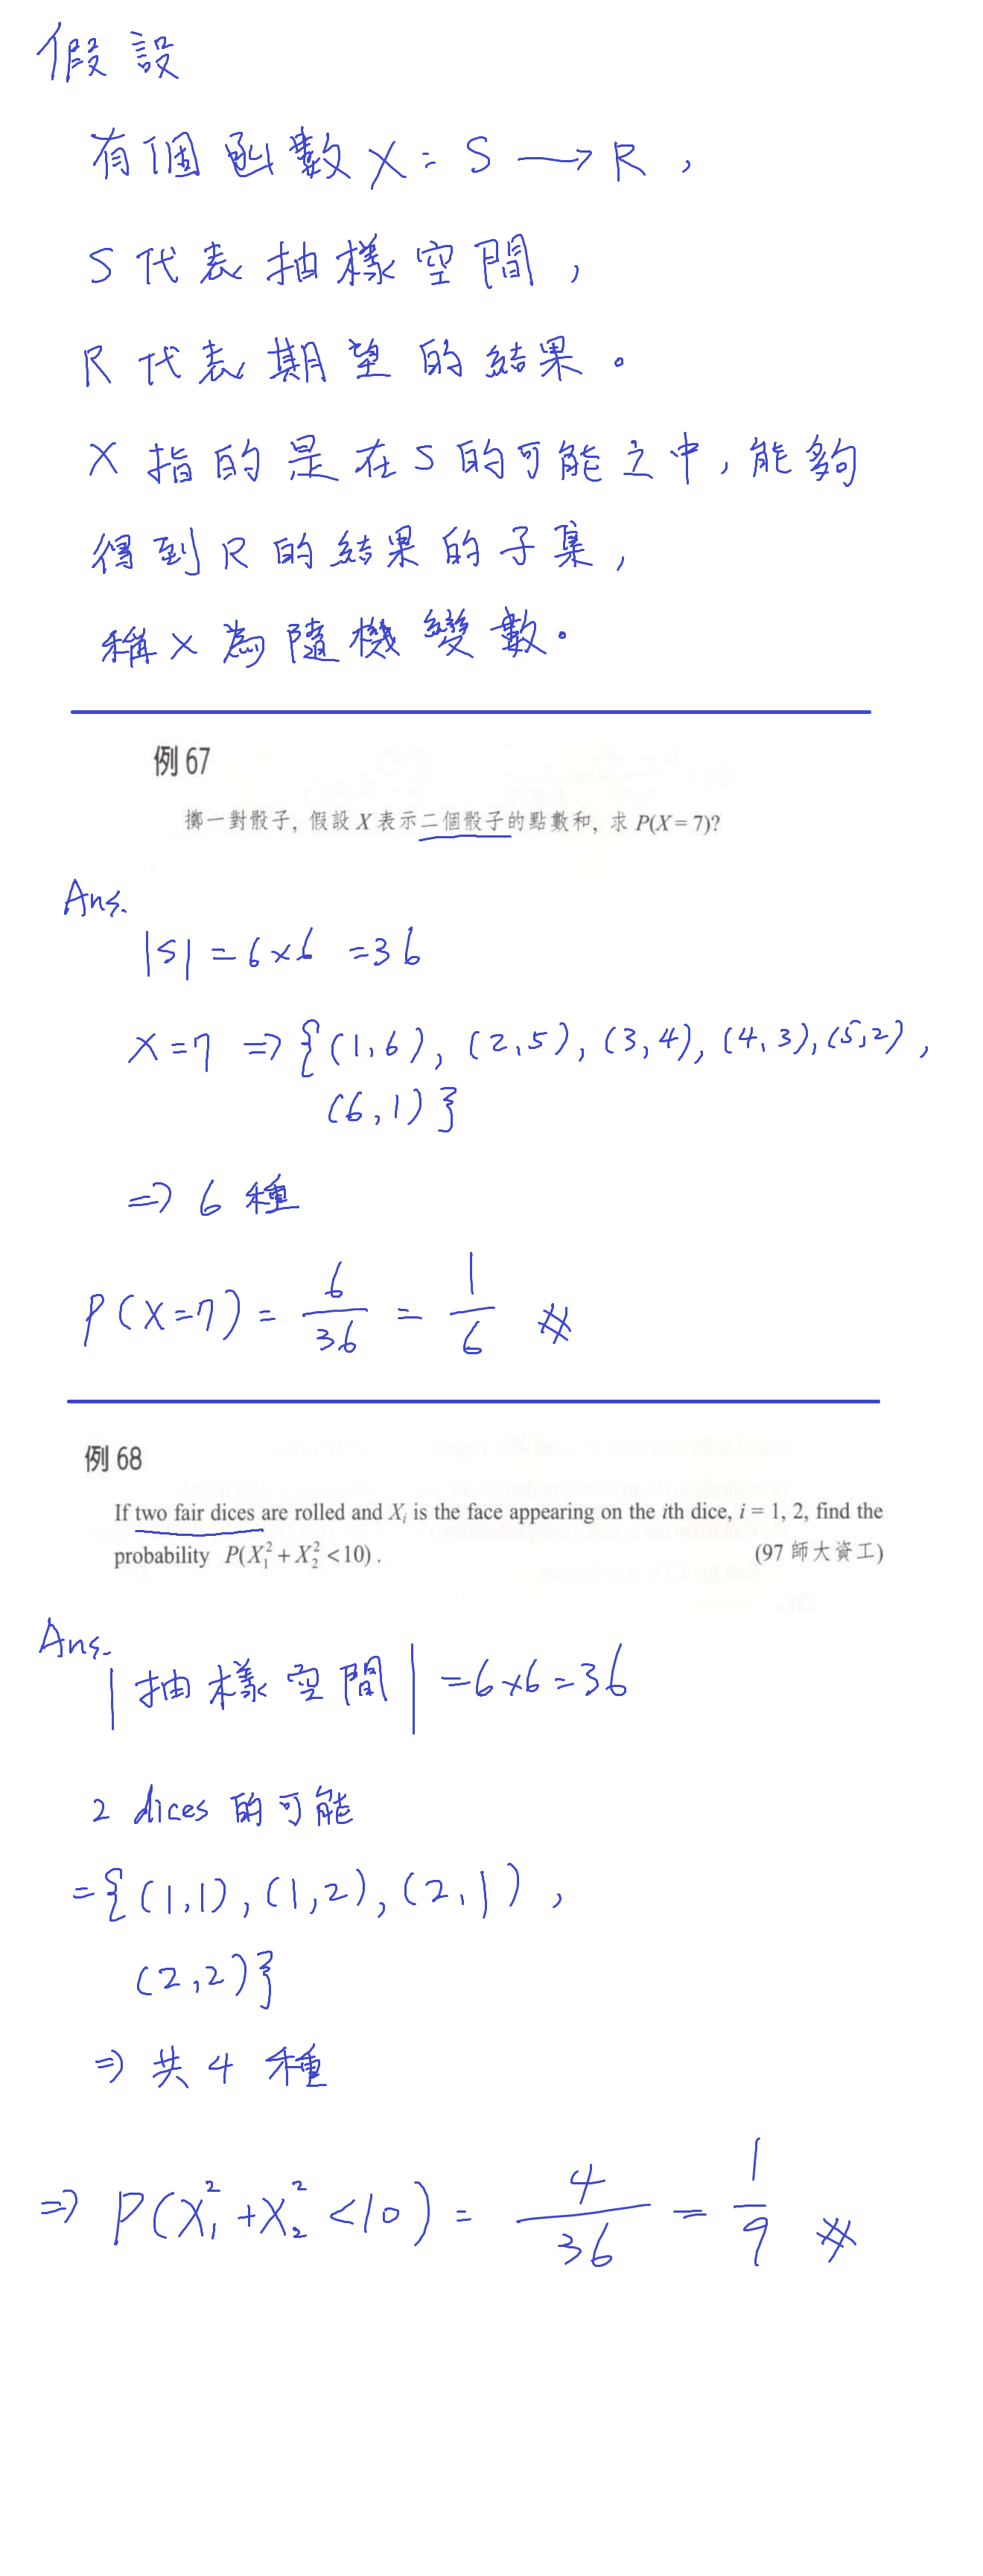 假設
有個函數 X : S → R ,
S 代表抽樣空間 ,
R 代表期望的結果。
X 指的是在 S 的可能之中, 能夠
得到 R 的結果的子集 ,
稱 X 為隨機變數。
例 67
擲一對骰子, 假設 X 表示二個骰子的點數和, 求 P(X = 7)?
Ans.
|S| = 6×6 = 36
X=7 ⇒ {(1,6), (2,5), (3,4), (4,3), (5,2),
(6,1)}
⇒ 6 種
P(X=7) = 6/36 = 1/6 #
例 68
If two fair dices are rolled and Xᵢ is the face appearing on the ith dice, i = 1, 2, find the
probability P(X₁² + X₂² < 10) . (97 師大資工)
Ans.
|抽樣空間| = 6×6 = 36
2 dices 的可能
= {(1,1), (1,2), (2,1),
(2,2)}
⇒ 共 4 種
⇒ P(X₁² + X₂² < 10) = 4/36 = 1/9 #